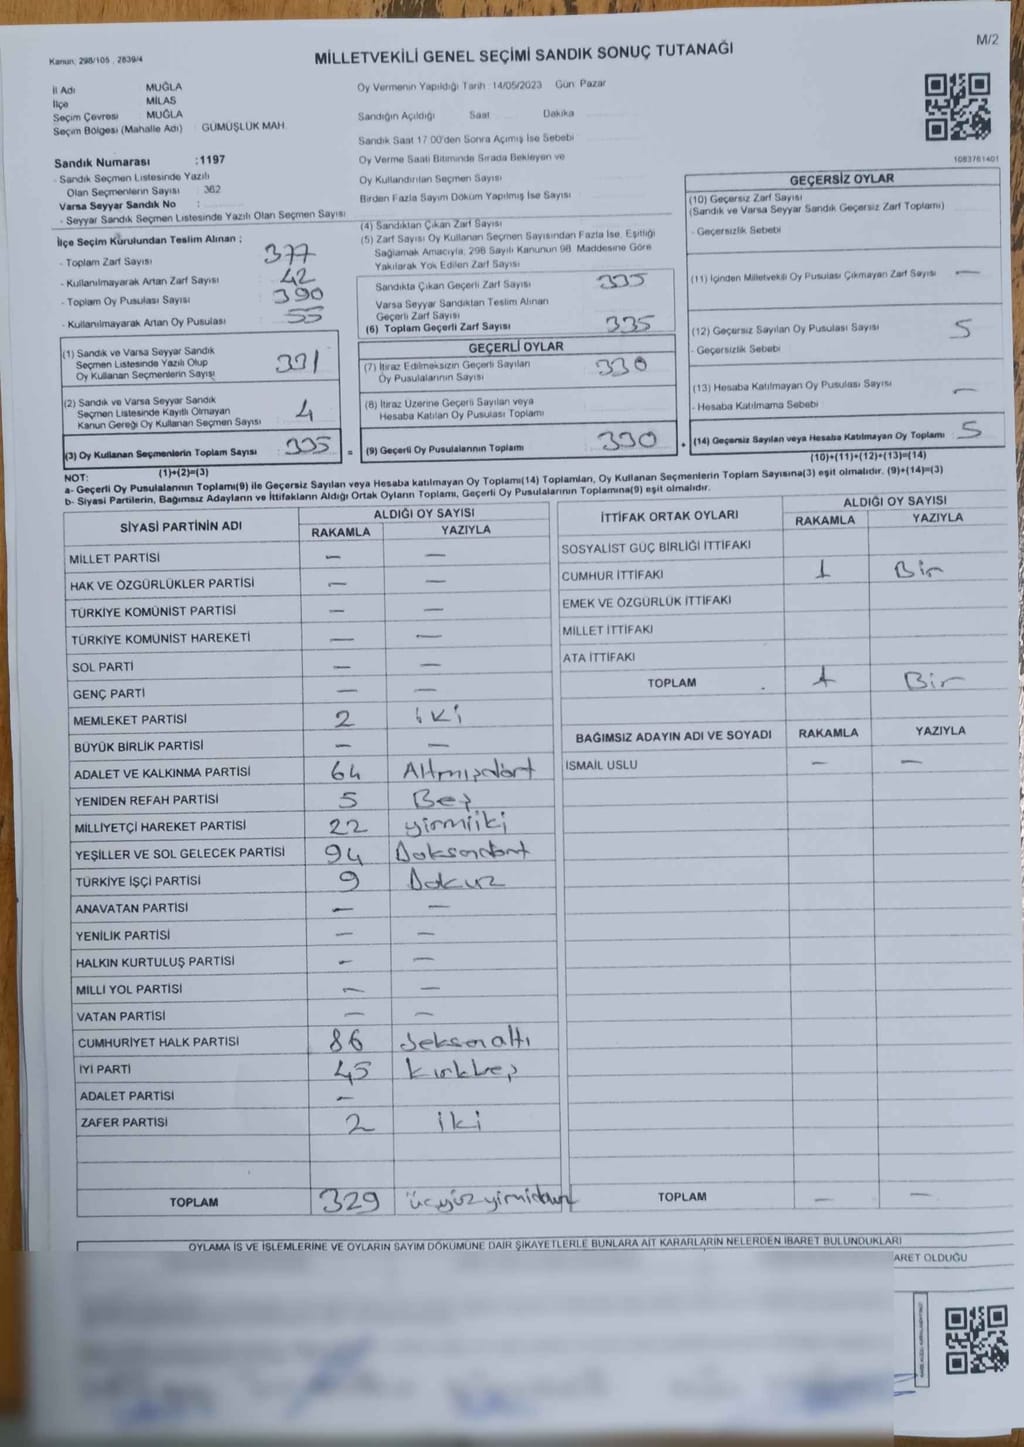 Kanun, 298/105 , 2839/4
MİLLETVEKİLİ GENEL SEÇİMİ SANDIK SONUÇ TUTANAĞI
M/2
İl Adı MUĞLA
İlçe MİLAS
Seçim Çevresi MUĞLA
Seçim Bölgesi (Mahalle Adı) GÜMÜŞLÜK MAH.
Sandık Numarası :1197
- Sandık Seçmen Listesinde Yazılı
Olan Seçmenlerin Sayısı 362
Varsa Seyyar Sandık No :
- Seyyar Sandık Seçmen Listesinde Yazılı Olan Seçmen Sayısı
Oy Vermenin Yapıldığı Tarih :14/05/2023 Gün: Pazar
Sandığın Açıldığı Saat Dakika
Sandık Saat 17:00'den Sonra Açılmış İse Sebebi
Oy Verme Saati Bitiminde Sırada Bekleyen ve
Oy Kullandırılan Seçmen Sayısı
Birden Fazla Sayım Döküm Yapılmış İse Sayısı
1083761401
İlçe Seçim Kurulundan Teslim Alınan ;
- Toplam Zarf Sayısı 377
- Kullanılmayarak Artan Zarf Sayısı 42
- Toplam Oy Pusulası Sayısı 390
- Kullanılmayarak Artan Oy Pusulası 55
(1) Sandık ve Varsa Seyyar Sandık
Seçmen Listesinde Yazılı Olup
Oy Kullanan Seçmenlerin Sayısı 331
(2) Sandık ve Varsa Seyyar Sandık
Seçmen Listesinde Kayıtlı Olmayan
Kanun Gereği Oy Kullanan Seçmen Sayısı 4
(3) Oy Kullanan Seçmenlerin Toplam Sayısı 335 =
(1)+(2)=(3)
(4) Sandıktan Çıkan Zarf Sayısı
(5) Zarf Sayısı Oy Kullanan Seçmen Sayısından Fazla İse, Eşitliği
Sağlamak Amacıyla, 298 Sayılı Kanunun 98. Maddesine Göre
Yakılarak Yok Edilen Zarf Sayısı
Sandıkta Çıkan Geçerli Zarf Sayısı 335
Varsa Seyyar Sandıktan Teslim Alınan
Geçerli Zarf Sayısı
(6) Toplam Geçerli Zarf Sayısı 335
GEÇERLİ OYLAR
(7) İtiraz Edilmeksizin Geçerli Sayılan
Oy Pusulalarının Sayısı 330
(8) İtiraz Üzerine Geçerli Sayılan veya
Hesaba Katılan Oy Pusulası Toplamı
(9) Geçerli Oy Pusulalarının Toplamı 330
GEÇERSİZ OYLAR
(10) Geçersiz Zarf Sayısı
(Sandık ve Varsa Seyyar Sandık Geçersiz Zarf Toplamı)
- Geçersizlik Sebebi
(11) İçinden Milletvekili Oy Pusulası Çıkmayan Zarf Sayısı —
(12) Geçersiz Sayılan Oy Pusulası Sayısı 5
- Geçersizlik Sebebi
(13) Hesaba Katılmayan Oy Pusulası Sayısı —
- Hesaba Katılmama Sebebi
(14) Geçersiz Sayılan veya Hesaba Katılmayan Oy Toplamı 5
(10)+(11)+(12)+(13)=(14)
NOT:
a- Geçerli Oy Pusulalarının Toplamı(9) ile Geçersiz Sayılan veya Hesaba katılmayan Oy Toplamı(14) Toplamları, Oy Kullanan Seçmenlerin Toplam Sayısına(3) eşit olmalıdır. (9)+(14)=(3)
b- Siyasi Partilerin, Bağımsız Adayların ve İttifakların Aldığı Ortak Oyların Toplamı, Geçerli Oy Pusulalarının Toplamına(9) eşit olmalıdır.
SİYASİ PARTİNİN ADI ALDIĞI OY SAYISI
RAKAMLA YAZIYLA
MİLLET PARTİSİ — —
HAK VE ÖZGÜRLÜKLER PARTİSİ — —
TÜRKİYE KOMÜNİST PARTİSİ — —
TÜRKİYE KOMÜNİST HAREKETİ — —
SOL PARTİ — —
GENÇ PARTİ — —
MEMLEKET PARTİSİ 2 iki
BÜYÜK BİRLİK PARTİSİ — —
ADALET VE KALKINMA PARTİSİ 64 Altmışdört
YENİDEN REFAH PARTİSİ 5 Beş
MİLLİYETÇİ HAREKET PARTİSİ 22 yirmiiki
YEŞİLLER VE SOL GELECEK PARTİSİ 94 Doksandört
TÜRKİYE İŞÇİ PARTİSİ 9 Dokuz
ANAVATAN PARTİSİ — —
YENİLİK PARTİSİ — —
HALKIN KURTULUŞ PARTİSİ — —
MİLLİ YOL PARTİSİ — —
VATAN PARTİSİ — —
CUMHURİYET HALK PARTİSİ 86 Seksenaltı
İYİ PARTİ 45 kırkbeş
ADALET PARTİSİ —
ZAFER PARTİSİ 2 iki
TOPLAM 329
İTTİFAK ORTAK OYLARI ALDIĞI OY SAYISI
RAKAMLA YAZIYLA
SOSYALİST GÜÇ BİRLİĞİ İTTİFAKI
CUMHUR İTTİFAKI 1 Bir
EMEK VE ÖZGÜRLÜK İTTİFAKI
MİLLET İTTİFAKI
ATA İTTİFAKI
TOPLAM 1 Bir
BAĞIMSIZ ADAYIN ADI VE SOYADI RAKAMLA YAZIYLA
İSMAİL USLU — —
TOPLAM — —
OYLAMA İŞ VE İŞLEMLERİNE VE OYLARIN SAYIM DÖKÜMÜNE DAİR ŞİKAYETLERLE BUNLARA AİT KARARLARIN NELERDEN İBARET BULUNDUKLARI
ARET OLDUĞU